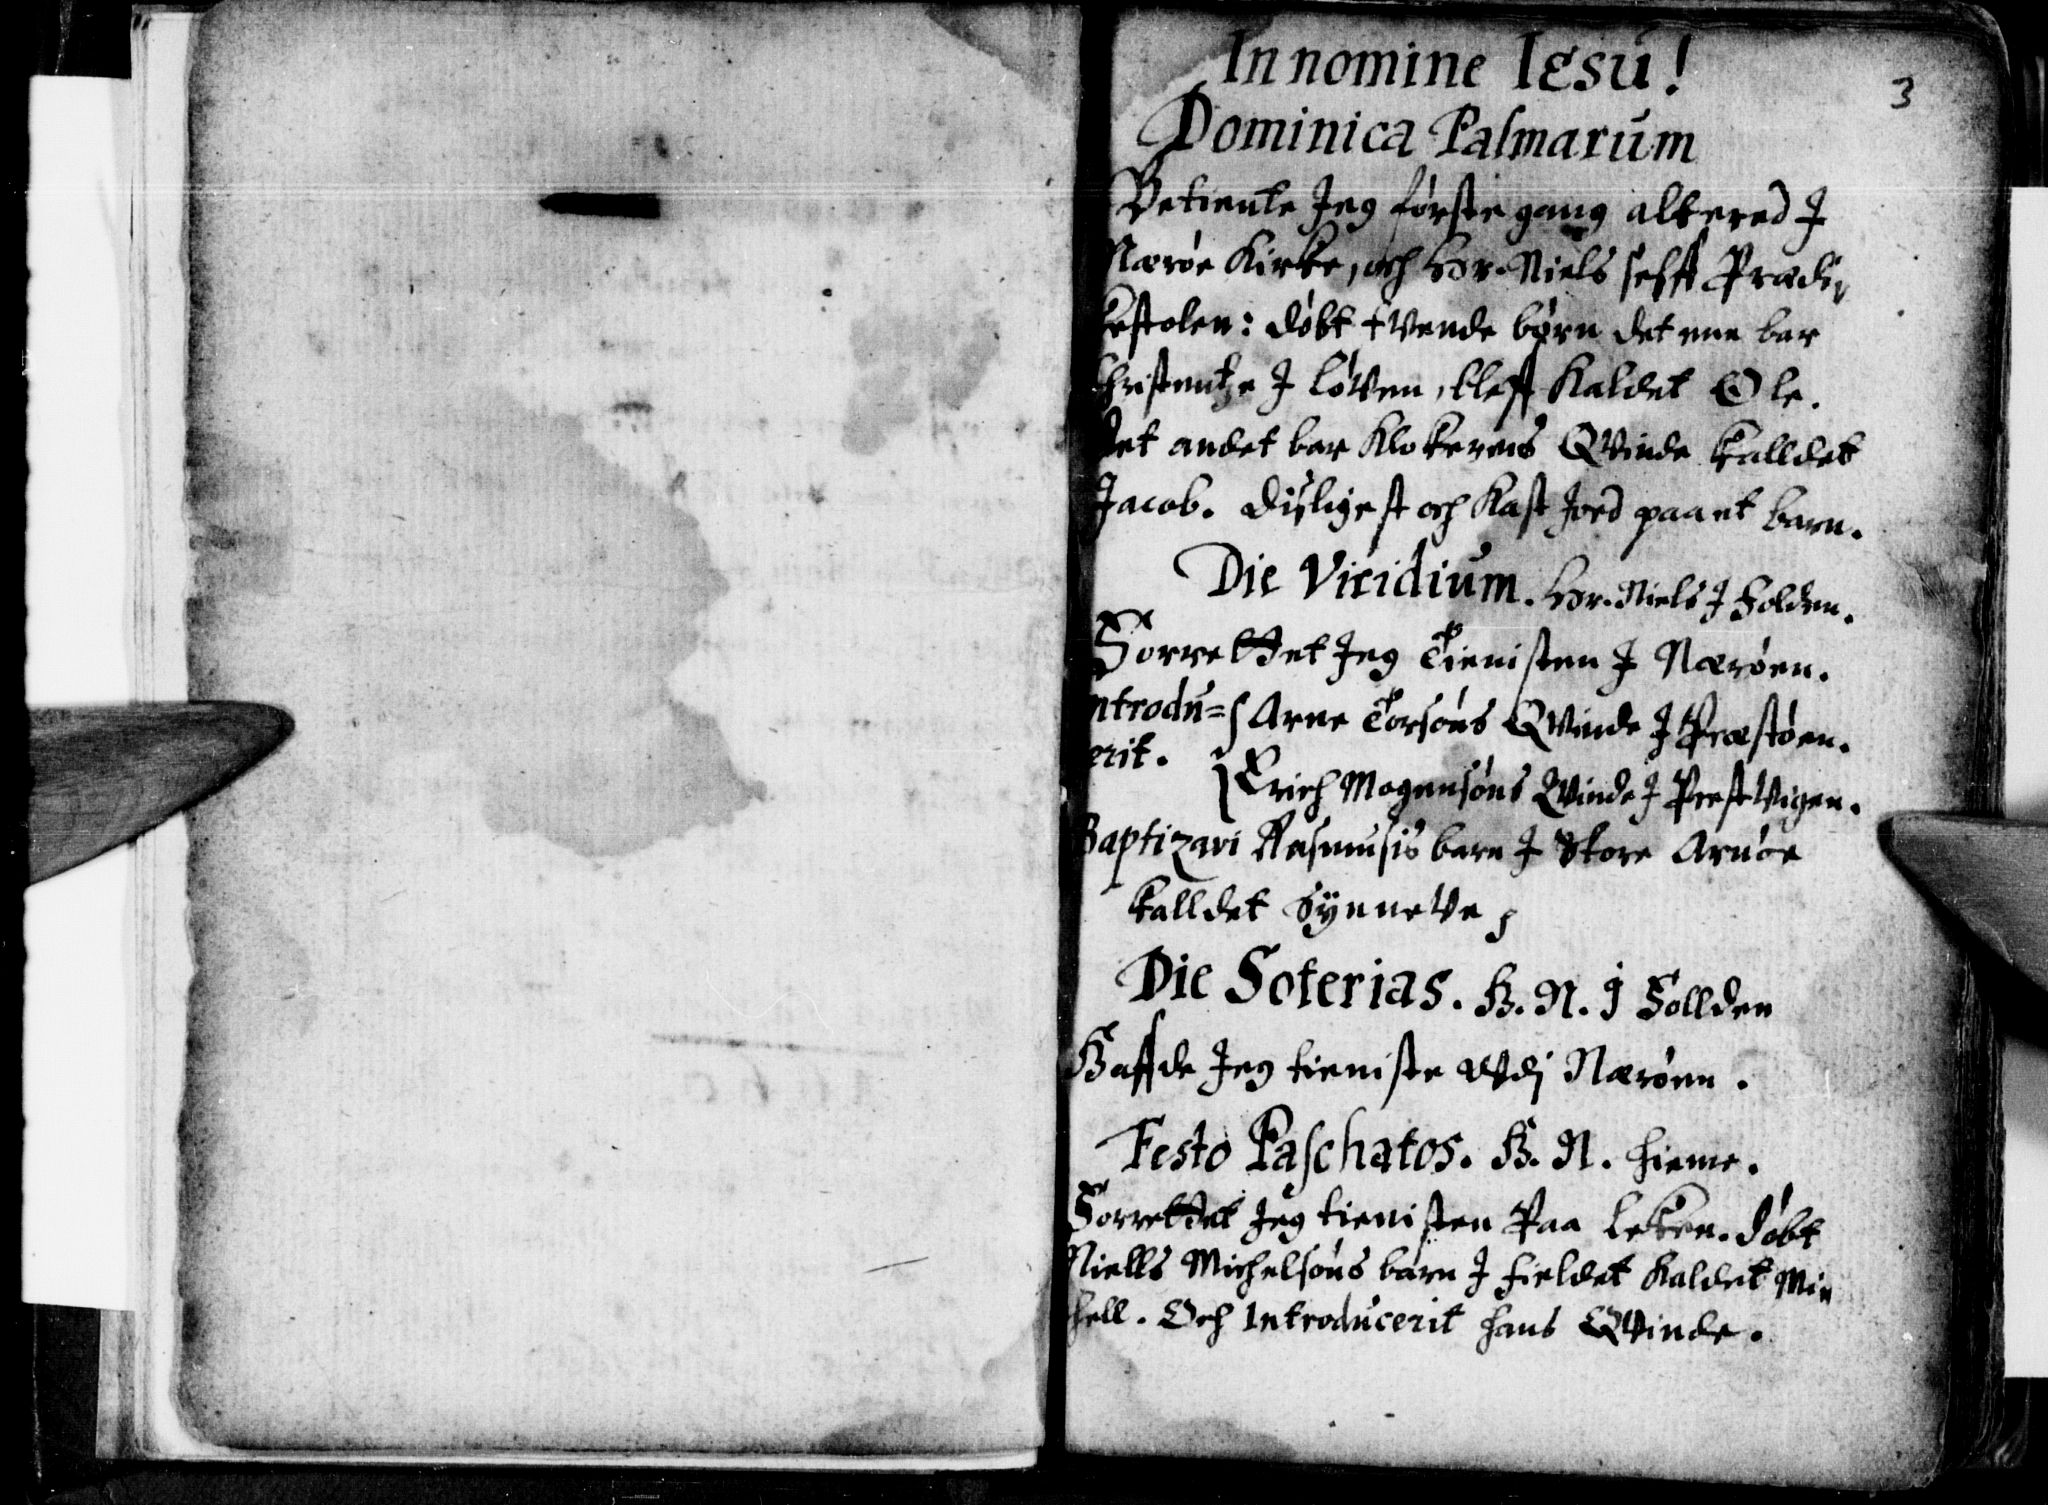 In nomine Iesu!
3
Dominica Palmarum
Betiente Jeg første gang altered J
Nærøe Kirke, och Hr. Niels selff Prædi¬
kestolen: døbt tvende børn det ene bar
Christentze J Løven, bleff kaldet Ole.
Det andet bar Klokerens Qvinde kalldet
Jacob. Disligest och kast Jord paa et barn.
Die Viridium. Hr. Niels J Folden.
Forrettet Jeg Tienisten J Nærøen.
Introdu= { Arne Torsøns Qvinde J Præstøen.
cerit. { Erich Mogensøns Qvinde J Prestvigen.
Baptizavi Rasmusis barn J Store Arnøe
kalldet Synneve
Die Soterias. H. N. J Follden
Haffde Jeg tieniste udj Nærøen.
Festo Paschatos. H. N. hieme.
Forrettet Jeg tienisten Paa Leken. døbt
Niells Michelsøns barn J Fieldet kaldet Mi¬
chell. Och Introducerit hans Qvinde.